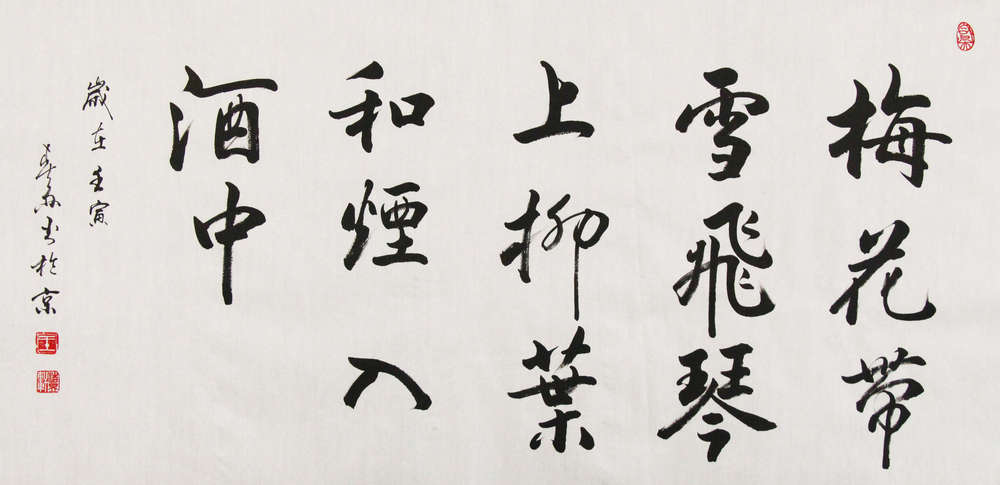 梅花带
雪飛琴
上柳葉
和煙入
酒中
歲在壬寅
书於京